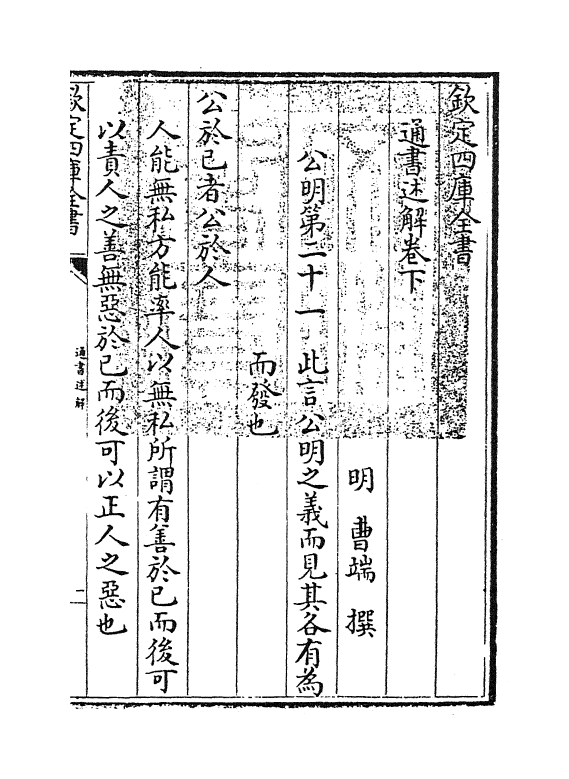 欽定四庫全書
通書述解卷下
明 曹端 撰
公明第二十一 此言公明之義而見其各有為
而發也
公於己者公於人
人能無私方能率人以無私所謂有善於己而後可
以責人之善無惡於己而後可以正人之惡也
欽定四庫全書
通書述解
一